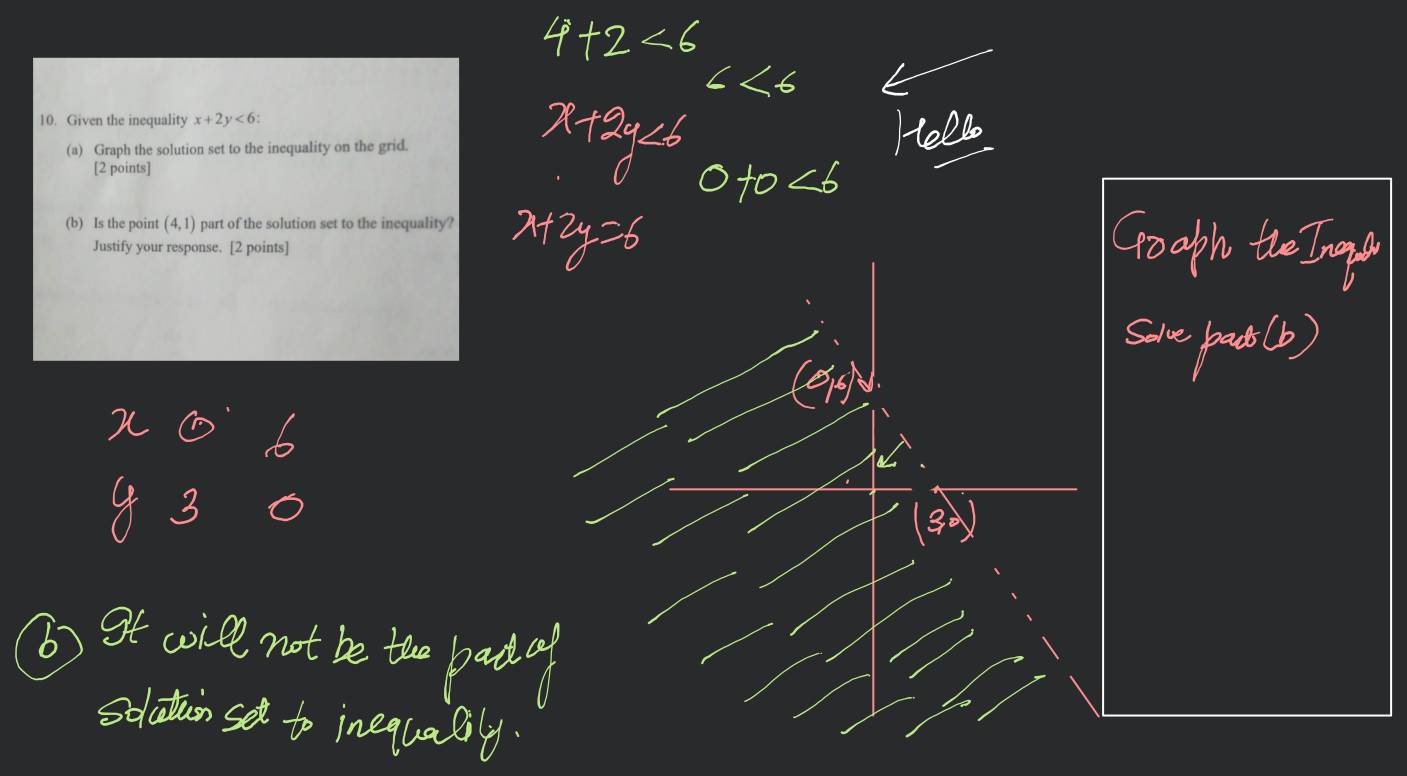 10. Given the inequality x+2y<6:
(a) Graph the solution set to the inequality on the grid.
[2 points]
(b) Is the point (4,1) part of the solution set to the inequality?
Justify your response. [2 points]
4+2<6
6<6
x+2y<6
0+0<6
x+2y=6
Hello
Graph the
Solve part(b)
(0,6)
(3,0)
x 0 6
y 3 0
(b) It will not be the part of
solution set to inequality.